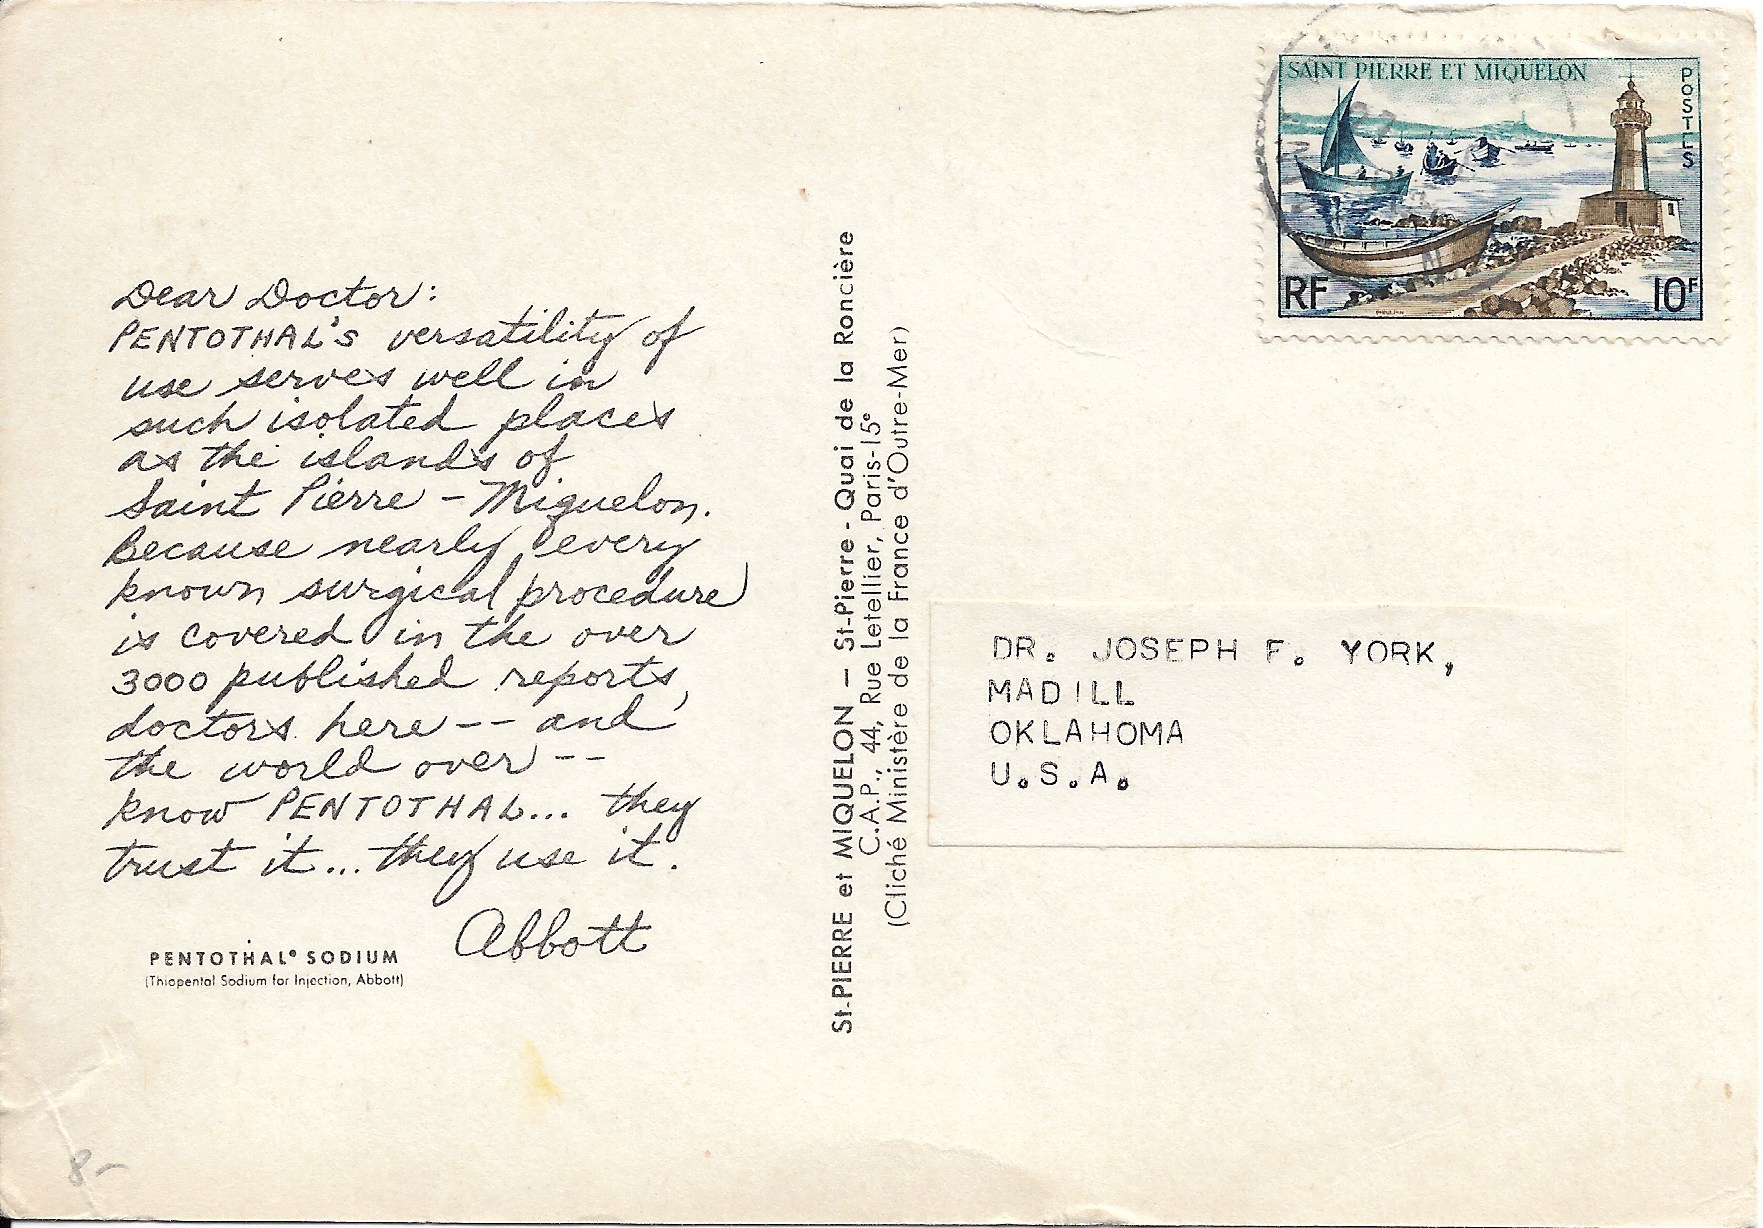 Dear Doctor:
PENTOTHAL'S versatility of
use serves well in
such isolated places
as the islands of
Saint Pierre - Miquelon.
Because nearly every
known surgical procedure
is covered in the over
3000 published reports,
doctors here -- and
the world over --
know PENTOTHAL... they
trust it... they use it.
Abbott
PENTOTHAL® SODIUM
(Thiopental Sodium for Injection, Abbott)
8-
St-PIERRE et MIQUELON — St-Pierre - Quai de la Roncière
C.A.P., 44, Rue Letellier, Paris-15e
(Cliché Ministère de la France d'Outre-Mer)
SAINT PIERRE ET MIQUELON
POSTES
RF
10F
DR. JOSEPH F. YORK,
MADILL
OKLAHOMA
U.S.A.